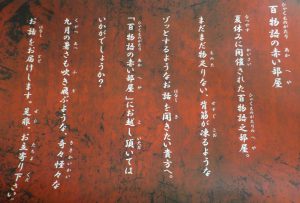 百物語の赤い部屋
夏休みに開催された百物語之部屋。
まだまだ物足りない、背筋が凍るような
ゾッとするようなお話を聞きたい貴方へ。
「百物語の赤い部屋」にお越し頂いては
いかがでしょうか？
九月の暑さも吹き飛ぶような、奇々怪々な
お話をお届けします。是非、お立寄り下さい。